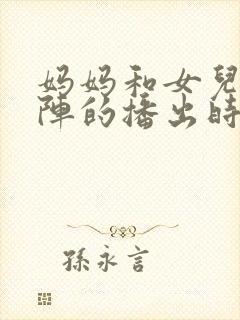 妈妈和女兒
陣的播出時
孫永言